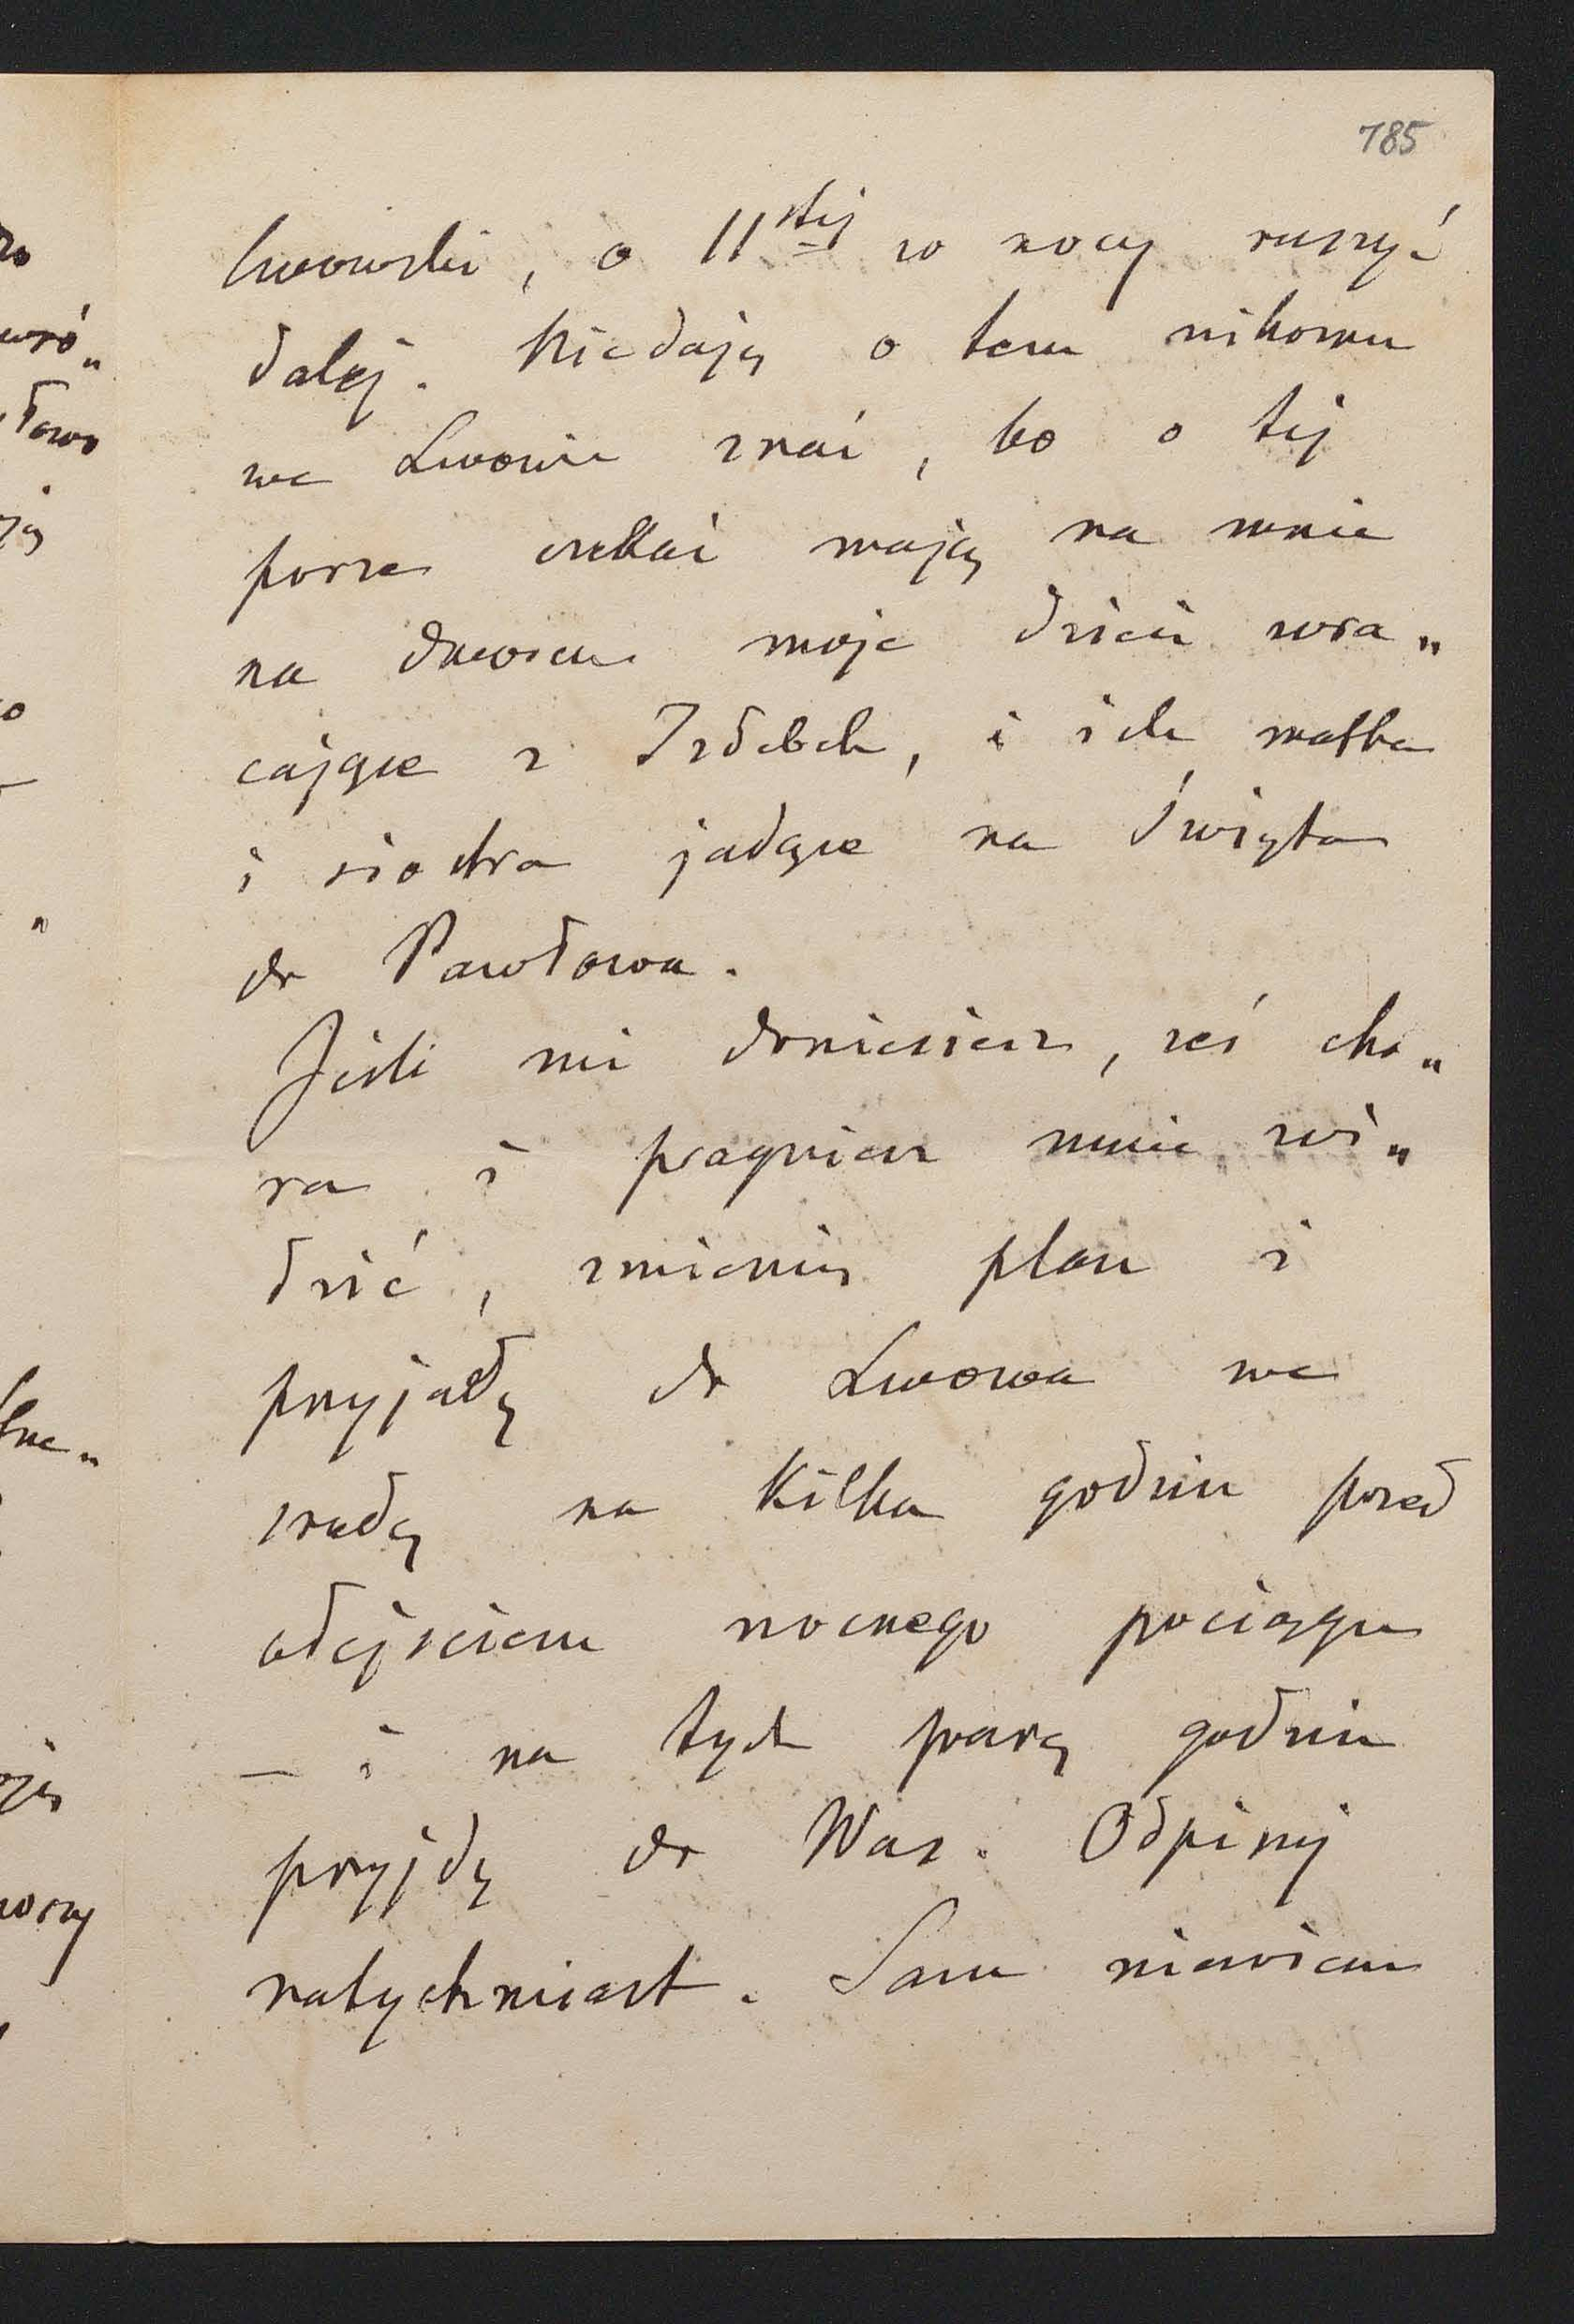 785
lwowski, o 11stej w nocy ruszyć
dalej. Niedaję o tem nikomu
we Lwowie znać, bo o tej
porze czekać mają na mnie
na dworcu moje dzieci wra„
cające z Izdebek, i ich matka
i siostra jadące na Święta
do Pawłowa.
Jeśli mi doniesiesz, żeś cho„
ra i pragniesz mnie wi„
dzić, zmienię plan i
przyjadę do Lwowa we
środę na kilka godzin przed
odejściem nocnego pociągu
— i na tych parę godzin
przyjdę do Was. Odpisuj
natychmiast. Sam niewiem